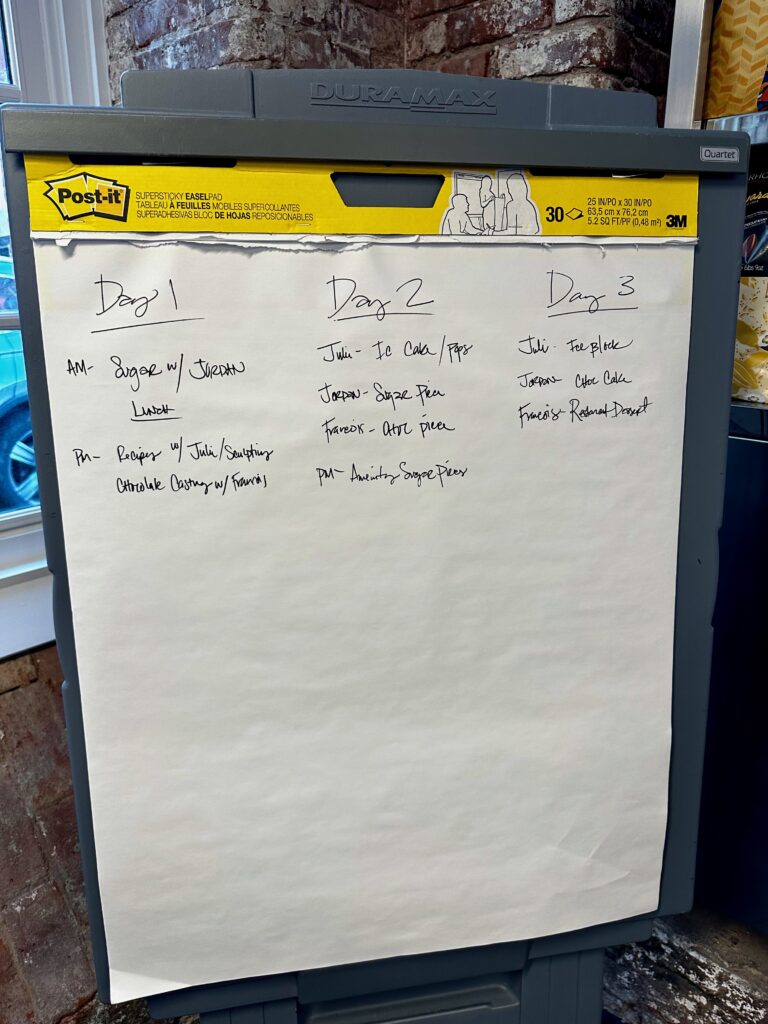 DURAMAX
Quartet
Post-it
SUPERSTICKY EASELPAD
TABLEAU À FEUILLES MOBILES SUPERCOLLANTES
SUPERADHESIVAS BLOC DE HOJAS REPOSICIONABLES
30
25 IN/PO x 30 IN/PO
63,5 cm x 76,2 cm
5.2 SQ FT/PP (0,48 m²)
3M
Day 1
AM- Sugar w/ JORDAN
LUNCH
PM- Recipes w/ Juli/Sculpting
Chocolate Casting w/ Francois
Day 2
Juli- Ic Cake/Pops
Jordan- Sugar Piece
Francois- Choc piece
PM- Amenity Sugar pieces
Day 3
Juli- Ice Block
Jordan- Choc Cake
Francois- Restaurant Dessert